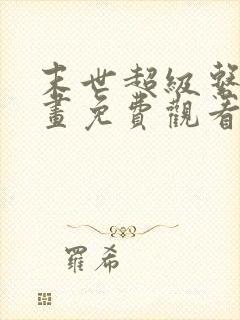 末世超級
畫免費觀看
羅希